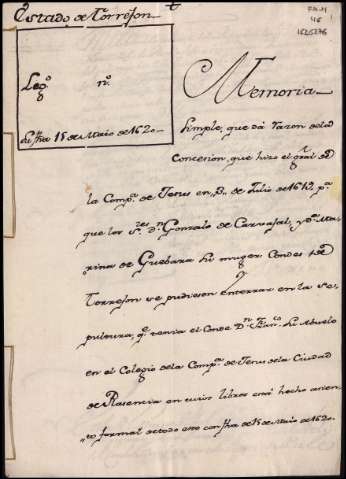 Estado de Torrejon
Leg.º n.º
Su fha 15 de Maio de 1620
Memoria
Simple, que dá razon de la
Concesion, que hizo el gral de
la Comp.ª de Jesus en de Julio de 1642, p.ª
que los S.res D.n Gonzalo de Carvajal, y D.ª Ma-
rina de Guebara su muger Condes de
Torrejon se pudiesen enterrar en la Se-
pultura, q.e tenia el Conde D.n Fran.co su Abuelo
en el Colegio de la Comp.ª de Jesus de la Ciudad
de Plasencia en cuios libros está hecho asien-
to formal de todo esto con fha de 15 de Maio de 1620.